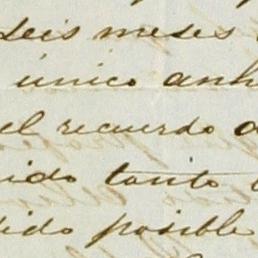 seis meses
único anh
el recuerdo d
ido tanto
dido posible